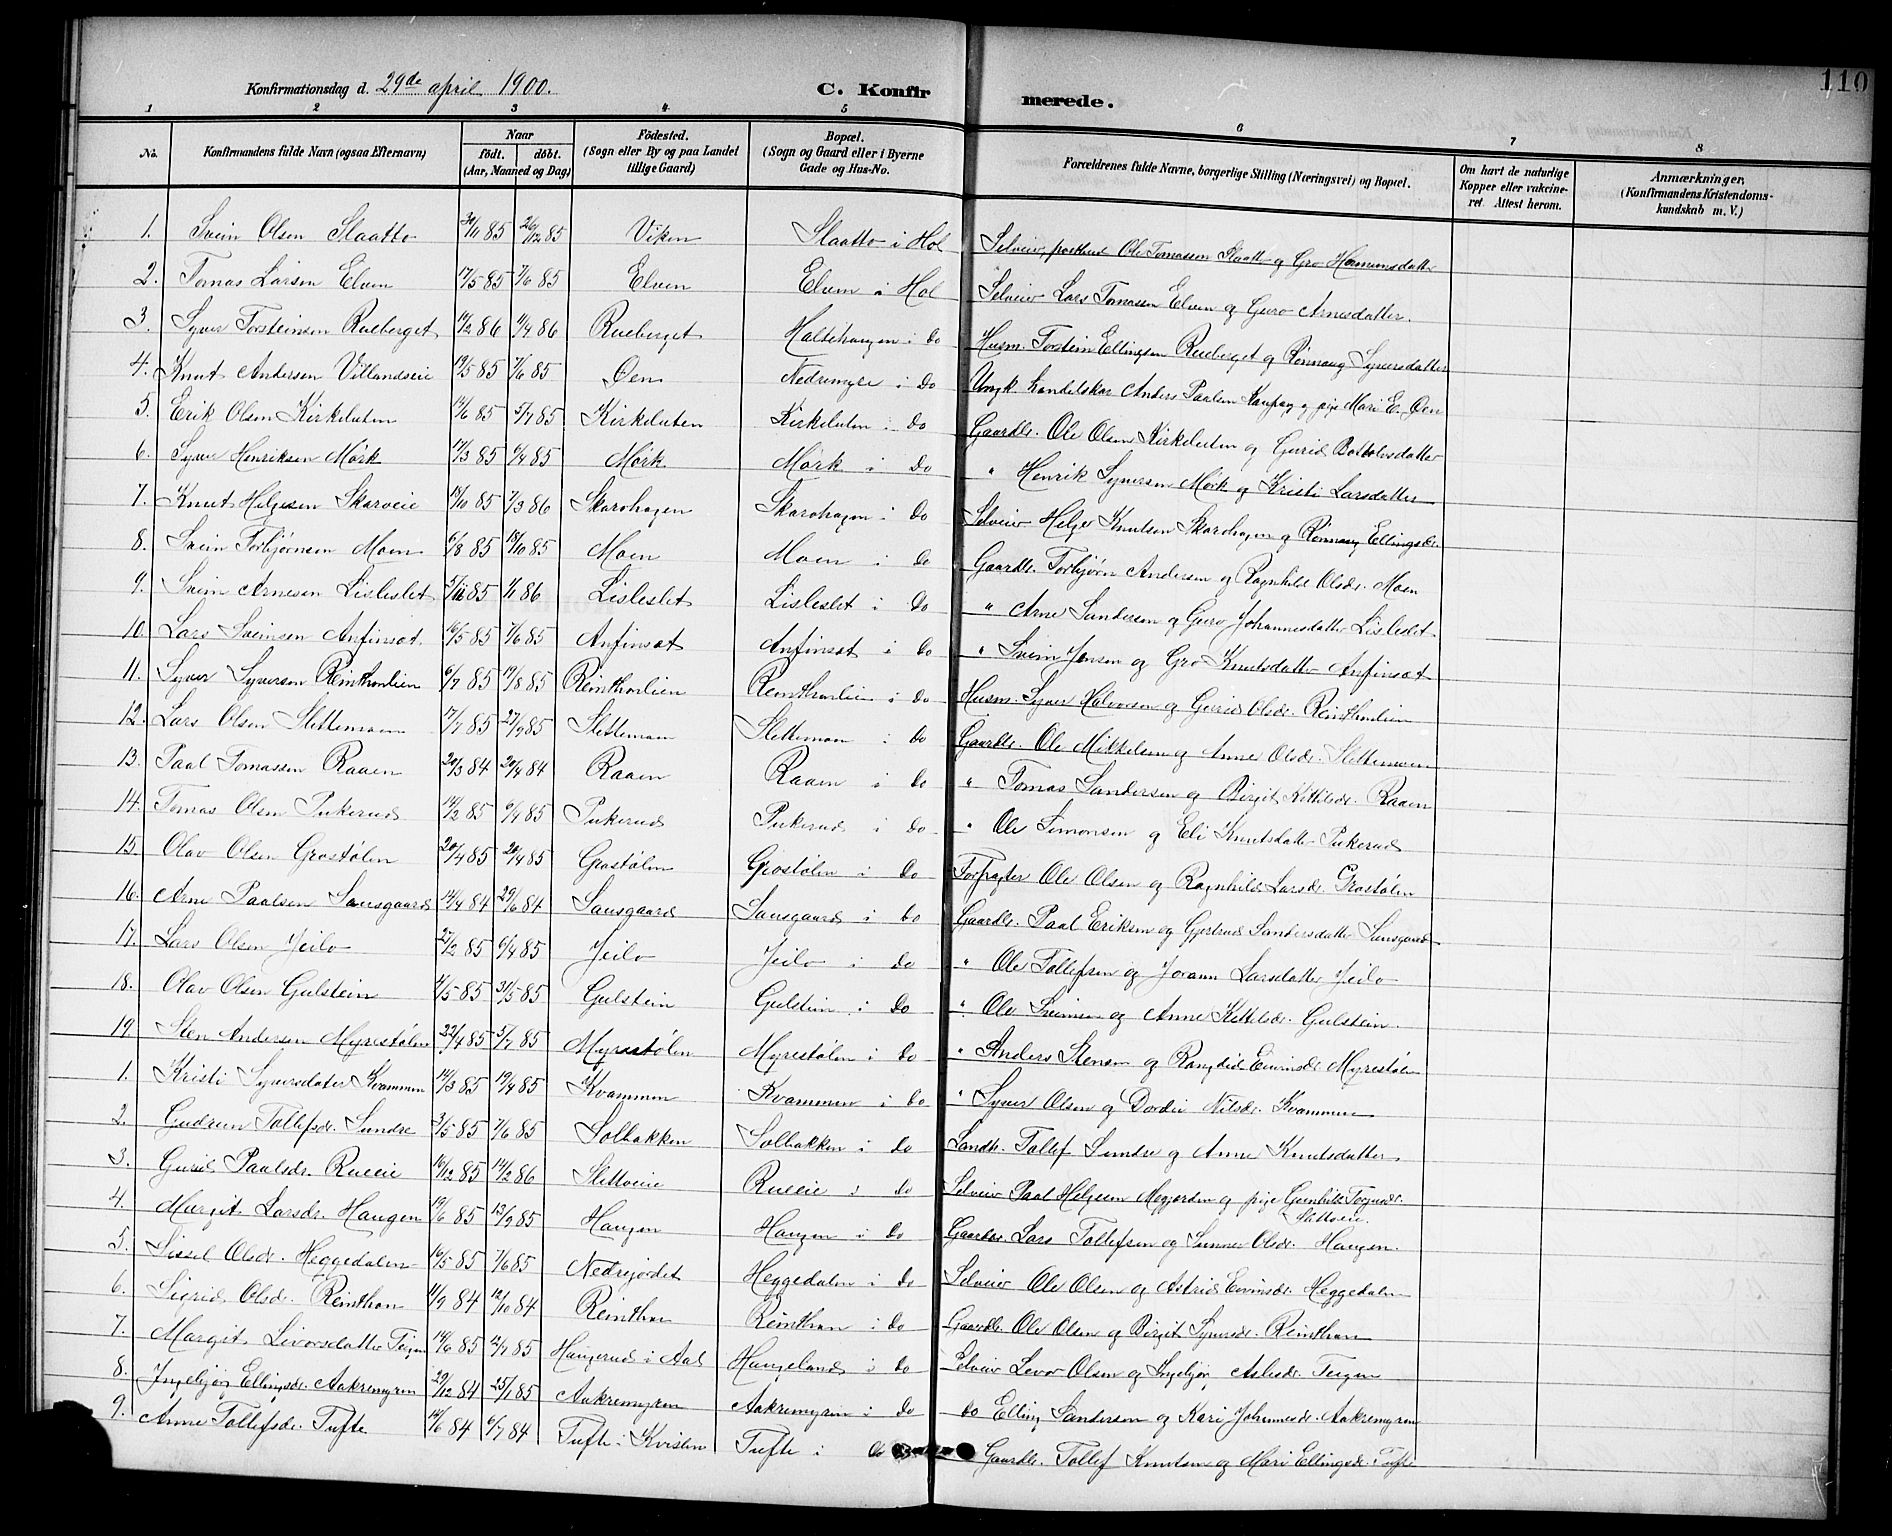 110
Konfirmationsdag d. 29de april 1900.
C. Konfirmerede.
1 2 3 4 5 6 7 8
No. Konfirmandens fulde Navn (ogsaa Efternavn) Naar født. døbt. (Aar, Maaned og Dag) Fødested. (Sogn eller By og paa Landet tillige Gaard) Bopæl. (Sogn og Gaard eller i Byerne Gade og Hus-No. Forældrenes fulde Navne, borgerlige Stilling (Næringsvei) og Bopæl. Om havt de naturlige Kopper eller vaccineret. Attest herom. Anmærkninger, (Konfirmandens Kristendomskundskab m. V.)
1. Svein Olsen Slaatto 30/11 85 26/12 85 Viken Slaatto i Hol Selveier, postbud Ole Tomassen Slaatto og Gro Hermunsdatter
2. Tomas Larsen Elven 17/5 85 7/6 85 Elven Elven i Hol Selveier Lars Tomassen Elven og Guro Arnesdatter.
3. Syver Torsteinsen Rueberget 14/2 86 11/4 86 Rueberget Haltehaugen i do Husm. Torstein Ellingsen Rueberget og Rønnaug Syversdatter
4. Knut Andersen Villandseie 19/5 85 7/6 85 Øen Nedremyre i do Ungk. handelskar Anders Paalsen Kaupang og pige Mari E. Øen
5. Erik Olsen Kirkeluten 14/6 85 5/7 85 Kirkeluten Kirkeluten i do Gaardbr. Ole Olsen Kirkeluten og Gunid Bottolvsdatter
6. Syver Henriksen Mørk 17/3 85 6/4 85 Mørk Mørk i do " Henrik Syversen Mørk og Kristi Larsdatter
7. Knut Helgesen Skarveie 18/10 85 7/3 86 Skarohagen Skarohagen i do Selveier Helge Knutsen Skarohagen og Rønnaug Ellingsdr.
8. Svein Torbjørnsen Moen 6/8 85 18/10 85 Moen Moen i do Gaardbr. Torbjørn Andersen og Ragnhild Olsdr. Moen
9. Svein Arnesen Lisleslet 5/11 85 1/1 86 Lisleslet Lisleslet i do " Arne Sandersen og Guro Johannesdatter Lisleslet
10. Lars Sveinsen Anfinsæt 16/5 85 7/6 85 Anfinsæt Anfinsæt i do " Svein Jensen og Gro Knutsdatter Anfinsæt
11. Syver Syversen Reinthonlien 6/7 85 17/8 85 Reinthonlien Reinthonlien i do Husm. Syver Halvorsen og Gunid Olsdr. Reinthonlien
12. Lars Olsen Slettemoen 17/7 85 27/9 85 Slettemoen Slettemoen i do Gaardbr. Ole Mikkelsen og Anne Olsdr. Slettemoen
13. Paal Tomassen Raaen 20/3 84 20/4 84 Raaen Raaen i do " Tomas Sandersen og Birgit Kittilsdr. Raaen
14. Tomas Olsen Pukerud 14/2 85 6/4 85 Pukerud Pukerud i do " Ole Simonsen og Eli Knutsdatter Pukerud
15. Olav Olsen Grostølen 20/4 85 20/4 85 Grostølen Grostølen i do Forpagter Ole Olsen og Ragnhild Larsdr. Grostølen
16. Arne Paalsen Sansgaard 14/4 84 29/6 84 Sansgaard Sansgaard i do Gaardbr. Paal Eriksen og Gjertrud Sandersdatter Sansgaard
17. Lars Olsen Jeilo 27/2 85 6/4 85 Jeilo Jeilo i do " Ole Tollefsen og Jorann Larsdatter Jeilo
18. Olav Olsen Gulstein 4/5 85 31/5 85 Gulstein Gulstein i do " Ole Sveinsen og Anne Kittilsdr. Gulstein
19. Sten Andersen Myrestølen 22/4 85 5/7 85 Myrestølen Myrestølen i do " Anders Stensen og Rangdid Eivinsdr. Myrestølen
1. Kristi Syversdater Kvammen 14/3 85 19/4 85 Kvammen Kvammen i do " Syver Olsen og Dordei Nilsdr. Kvammen
2. Gudrun Tollefsdr. Sundre 3/5 85 7/6 85 Solbakken Solbakken i do Landh. Tollef Sundre og Anne Knutsdatter
3. Guril Paalsdr. Rueeie 10/12 85 14/2 86 Slettoeie Rueeie i do Selveier Paal Helgesen Megjorden og pige Gunhild Torgusdr. Slettoeie.
4. Margit Larsdr. Haugen 19/6 85 13/9 85 Haugen Haugen i do Gaardbr. Lars Tollefsen og Sunnev Olsdr. Haugen.
5. Sissel Olsdr. Heggedalen 10/5 85 7/6 85 Nedrejordet Heggedalen i do Selveier Ole Olsen og Astrid Eivinsdr. Heggedalen
6. Sigrid Olsdr. Reinthon 11/9 84 12/10 84 Reinthon Reinthon i do Gaardbr. Ole Olsen og Birgit Syversdr. Reinthon
7. Margit Livorsdatter Teigen 14/6 85 12/7 85 Haugerud i Aal Haugeland i do Selveier Levor Olsen og Ingebjør Aslesdr. Teigen
8. Ingebjør Ellingsdr. Aakremyren 29/12 84 25/1 85 Aakremyren Aakremyren i do do Elling Sandersen og Kari Johannesdr. Aakremyren
9. Anne Tollefsdr. Tufte 14/6 84 6/7 84 Tufte i Kvislen Tufte i do Gaardbr. Tollef Knutsen og Mari Ellingsdr. Tufte